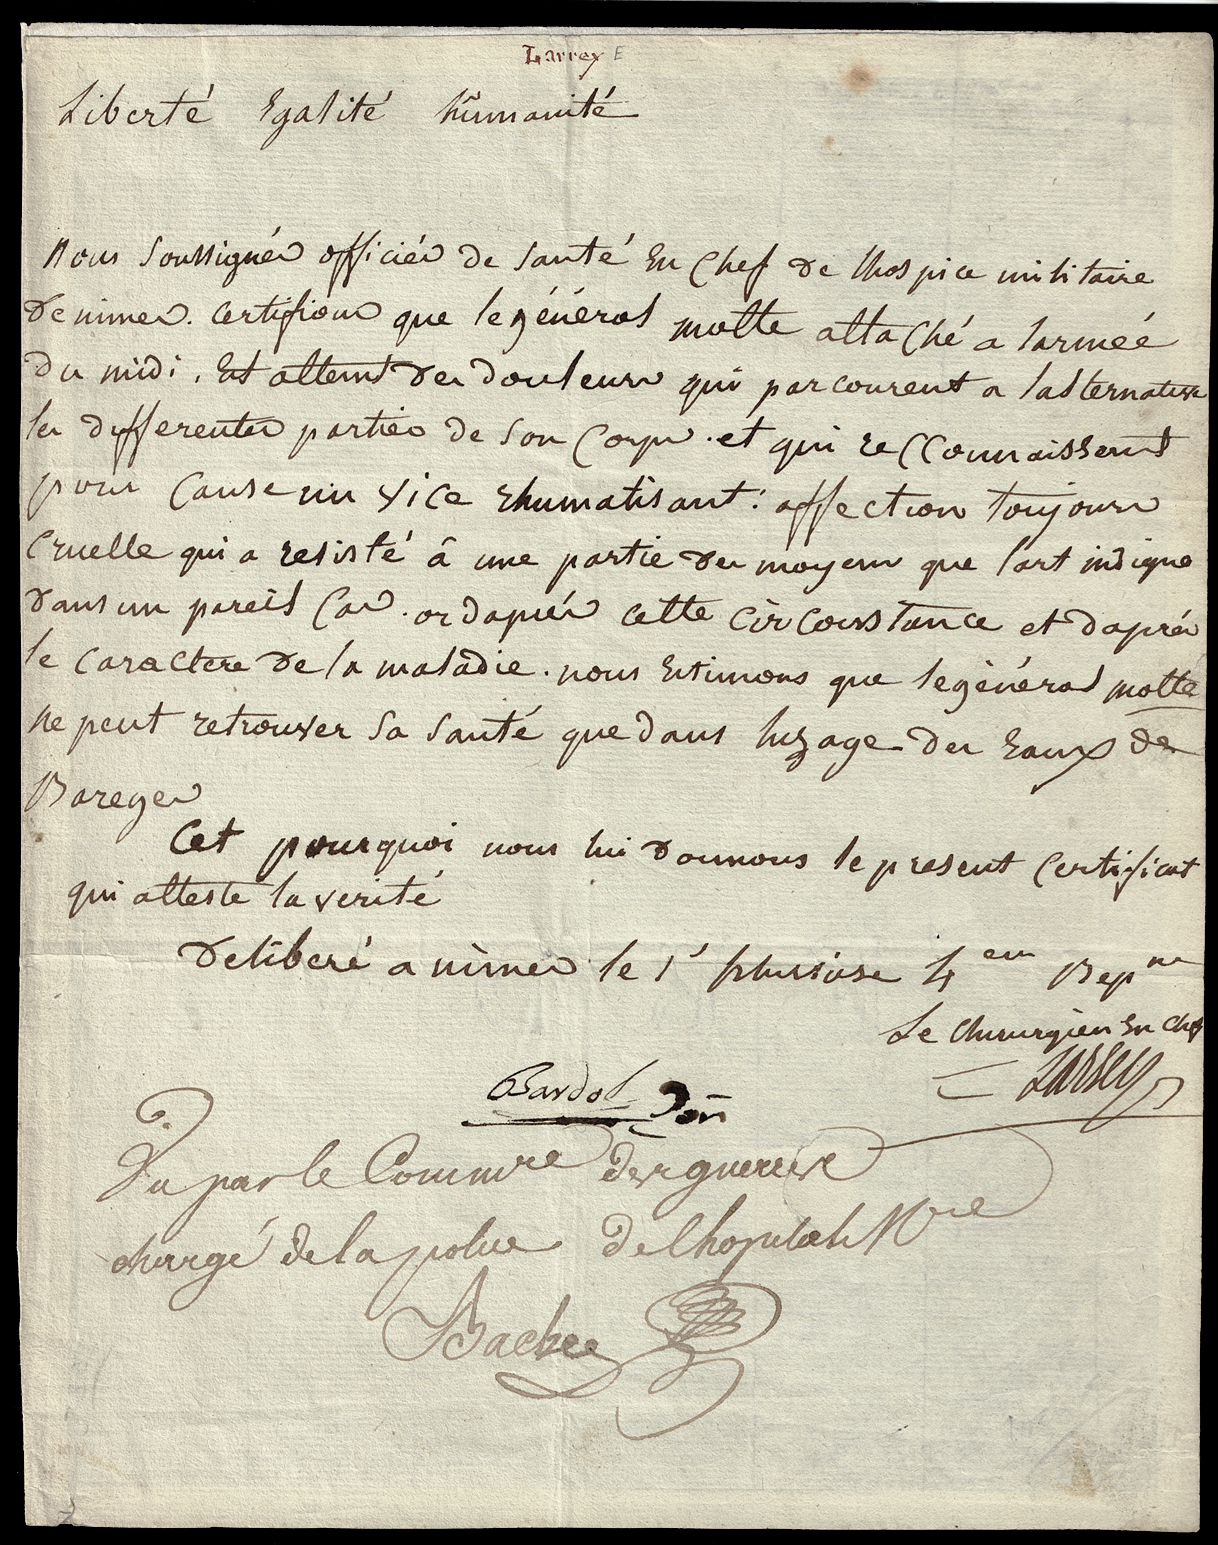 Larrey E
Liberté Egalité humanité
Nous soussignés officiés de santé En Chef de lhospice militaire
de nimes. certifions que le général motte attaché a larmée
du midi. Est atteint des douleurs qui parcourent a lalternative
les differentes parties de son Corps. et qui reCConnaissent
pour Cause un vice rhumatisant: affection toujours
Cruelle qui a resisté â une partie des moyens que lart indique
dans un pareil Cas. or daprés cette CirConstance et daprés
le caractere de la maladie. nous Estimons que le général motte
ne peut retrouver sa santé que dans luzage des Eaux de
Bareges
Cet pourquoi nous lui donnons le present Certificat
qui atteste la verité
Deliberé a nimes le 1r pluviose 4em Repne
Le Chirurgien En Chef
Bardol Don Larrey
Vu par le Commre des guerres
chargé de la police de lhopital Mre